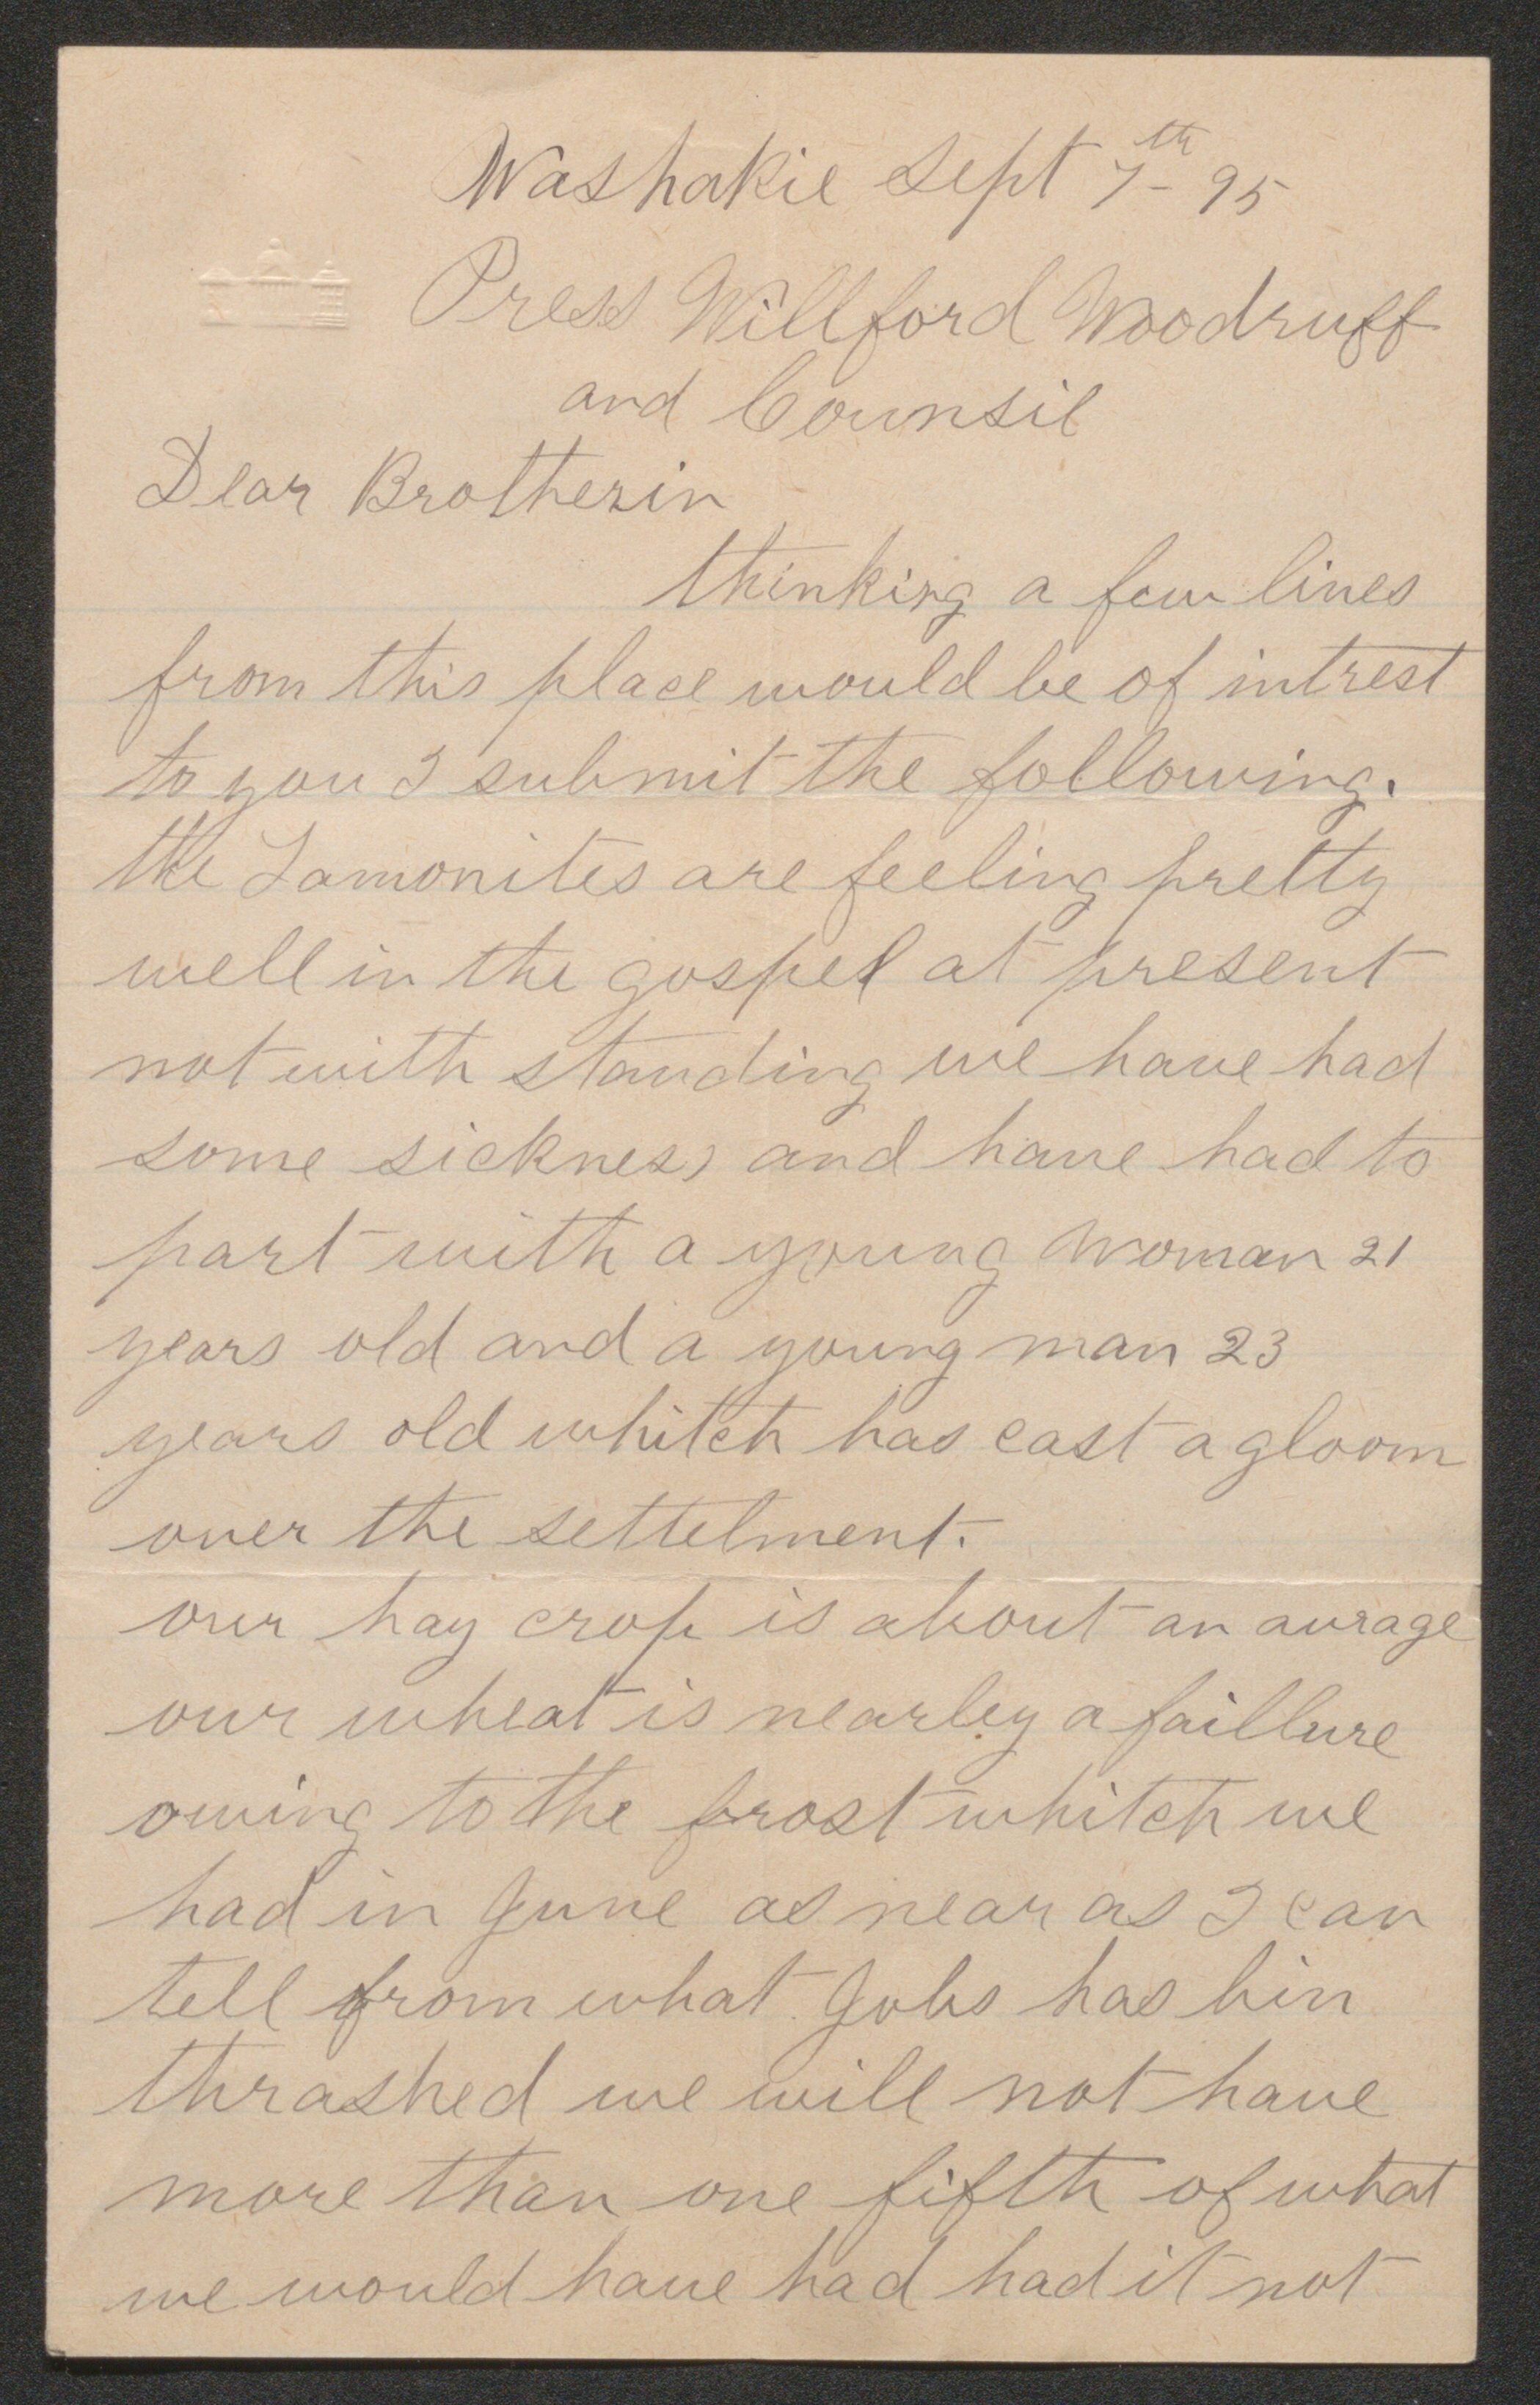 Washakie Sept 7th - 95
Press Willford Woodruff
and Counsil
Dear Brotherin
thinking a few lines
from this place would be of intrest
to you I submit the following.
the Lamonites are feeling pretty
well in the gospel at present
not with standing we have had
some sickness and have had to
part with a young woman 21
years old and a young man 23
years old whitch has cast a gloom
over the settelment.
our hay crop is about an avrage
our wheat is nearley a faillure
owing to the frost whitch we
had in June as near as I can
tell from what Jobs has bin
thrashed we will not have
more than one fifth of what
we would have had had it not